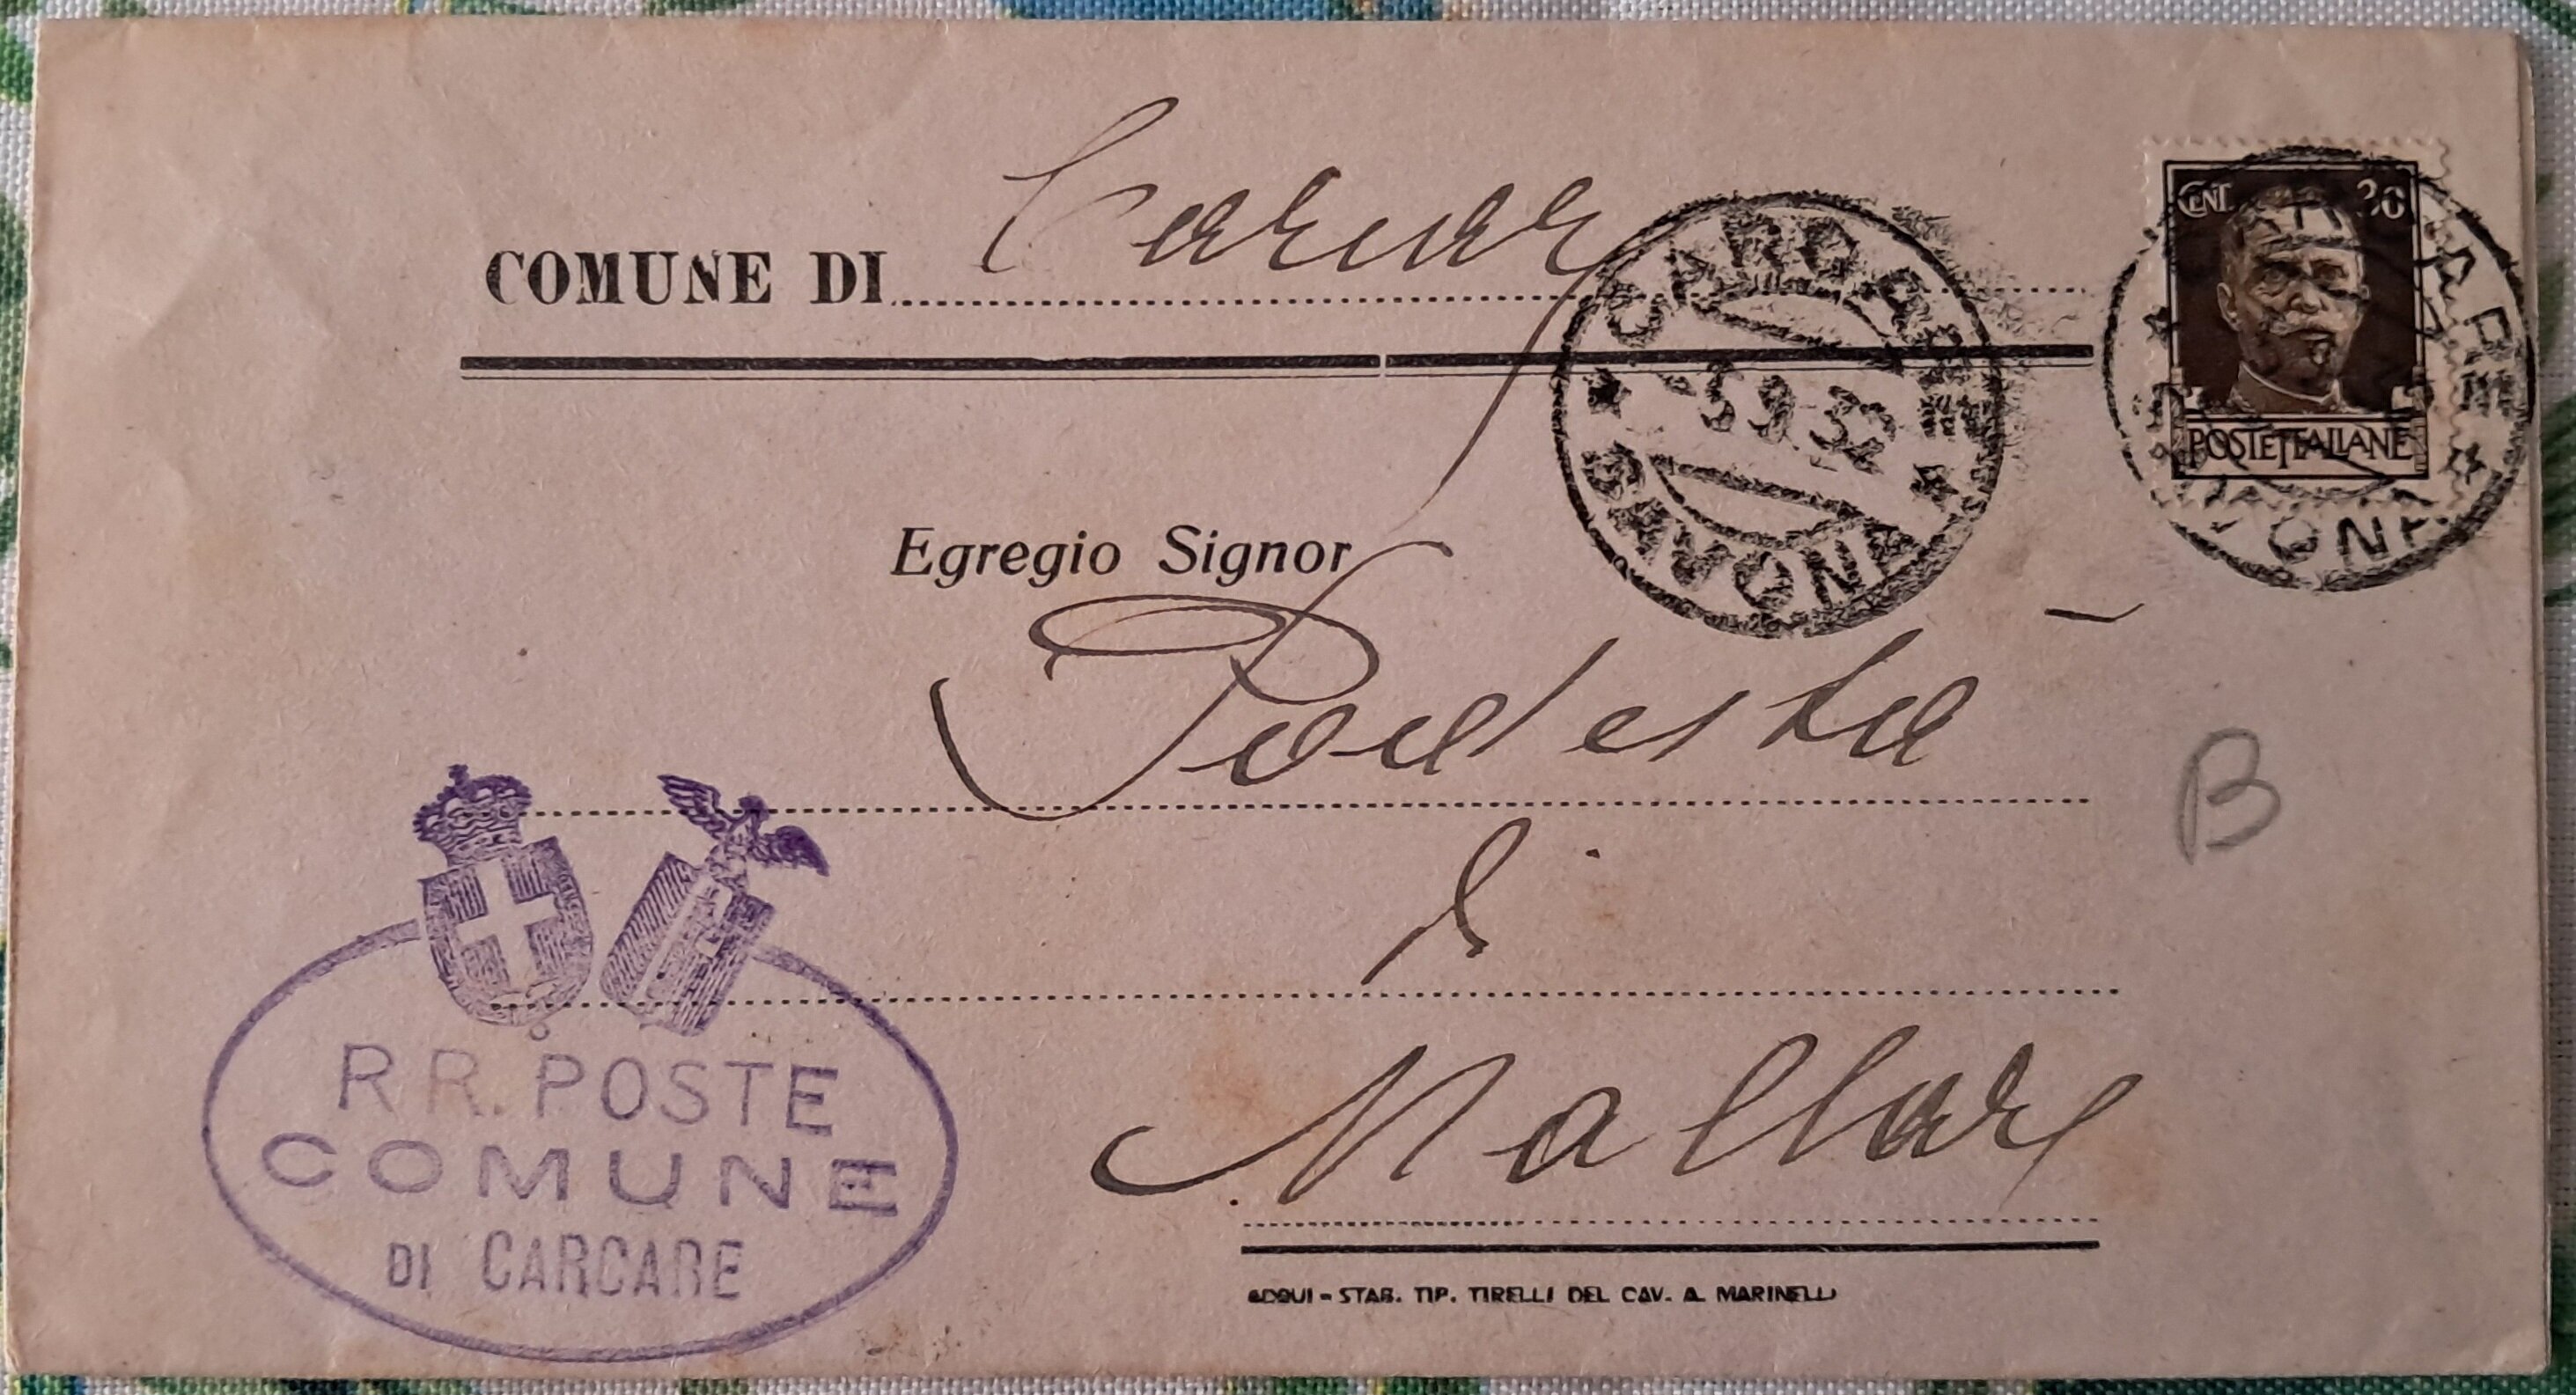 COMUNE DI Carcare
CENT. 30
POSTE ITALIANE
CARCARE
-5.9.32
SAVONA
Egregio Signor
Podestà
di
Mallare
B
RR. POSTE
COMUNE
DI CARCARE
ACQUI - STAB. TIP. TIRELLI DEL CAV. A. MARINELLI